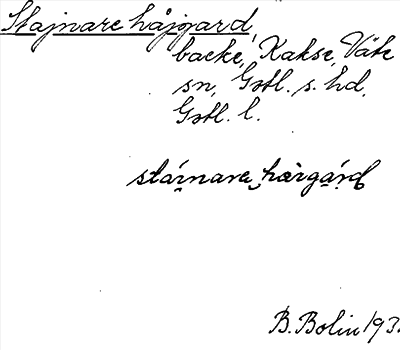 Stajnare håjgard,
backe, Kakse, Väte
sn, Gotl. s. hd,
Gotl. l.
stáịnare ̮hæ̀rgạ́rd
B. Bolin 193